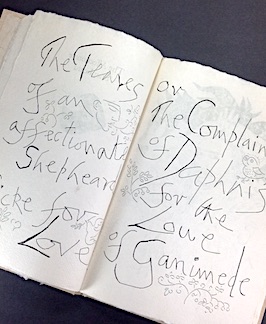 The Teares
of an
affectionate
Shepheard
sicke for
Love
or
The Complaint
of Daphnis
for the
Loue
of Ganimede